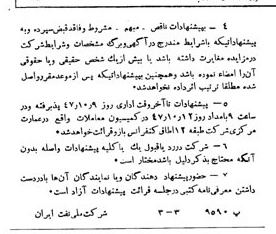 ۴ ـ بپیشنهادات ناقص ـ مبهم ـ مشروط وفاقد قبض سپرده وبه
پیشنهاداتیکه باشرایط مندرج درآگهی وبرگ مشخصات وشرایط شرکت
درمزایده مغایرت داشته باشد یا بیش ازیک شخص حقیقی ویا حقوقی
آن را امضاء نموده باشد وهمچنین بپیشنهاداتیکه پس ازموعدمقررواصل
شده مطلقا ترتیب اثرداده نخواهدشد
۵ ـ پیشنهادات تاآخروقت اداری روز ۴۷٫۹٫۱۰ پذیرفته ودر
ساعت ۹بامداد روز ۴۷٫۱۰٫۱۲ درکمیسیون معاملات واقع درعمارت
مرکزی شرکت طبقه ۱۲ اطاق کنفرانس بازوقرائت خواهدشد
۶ ـ شرکت دررد یاقبول یک یا کلیه پیشنهادات واصله بدون
آنکه محتاج بذکردلیل باشدمختار است
۷ ـ حضورپیشنهاد دهندگان ویا نمایندگان آن ها بادردست
داشتن معرفی نامه کتبی درجلسه قرائت پیشنهادات آزاد است
پ ۹۵۹۰ ۳-۳ شرکت ملی نفت ایران